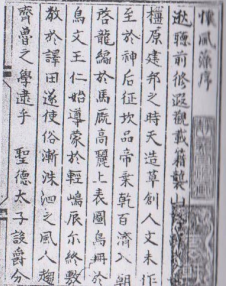 懷風藻序
逖聽前修遐觀載籍襲山降
橿原建邦之時天造草創人文未作
至於神后征坎品帝乘乾百濟入朝
啓龍編於馬厩高麗上表圖烏冊於
鳥文王仁始導蒙於輕嶋辰爾終敷
教於譯田遂使俗漸洙泗之風人趨
齊魯之學逮乎 聖德太子設爵分